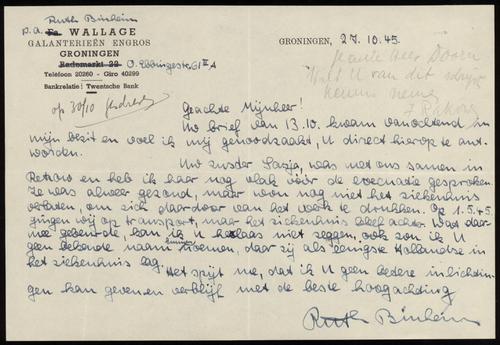 Ruth Binheim
p.a. Fa. WALLAGE
GALANTERIEËN ENGROS
GRONINGEN
Rademarkt 22 O. Ebbingestr. 61 II A
Telefoon 20260 - Giro 40299
Bankrelatie: Twentsche Bank
GRONINGEN, 27.10.45.
op 30/10
Geachte Mijnheer!
Uw brief van 13.10. kwam vanochtend in
mijn bezit en voel ik mij genoodzaakt, U direct hierop te ant
woorden.
Uw zuster Sasja, was met ons samen in
en heb ik haar nog vlak vóór de evacuatie gesproken
Ze was alweer gezond, maar wou nog niet het ziekenhuis
verlaten, om zich daardoor van het werk te drukken. Op 1.5.45
gingen wij op transport, maar het ziekenhuis bleef achter. Wat daar-
mee gebeurde, kan ik U helaas niet zeggen, ook zou ik U
geen bekende naam kunnen noemen, daar zij als eenigste Hollandse in
het ziekenhuis lag.
Het spijt me, dat ik U geen betere inlichtin-
gen kan geven en verblijf met de beste hoogachting
Ruth Binheim